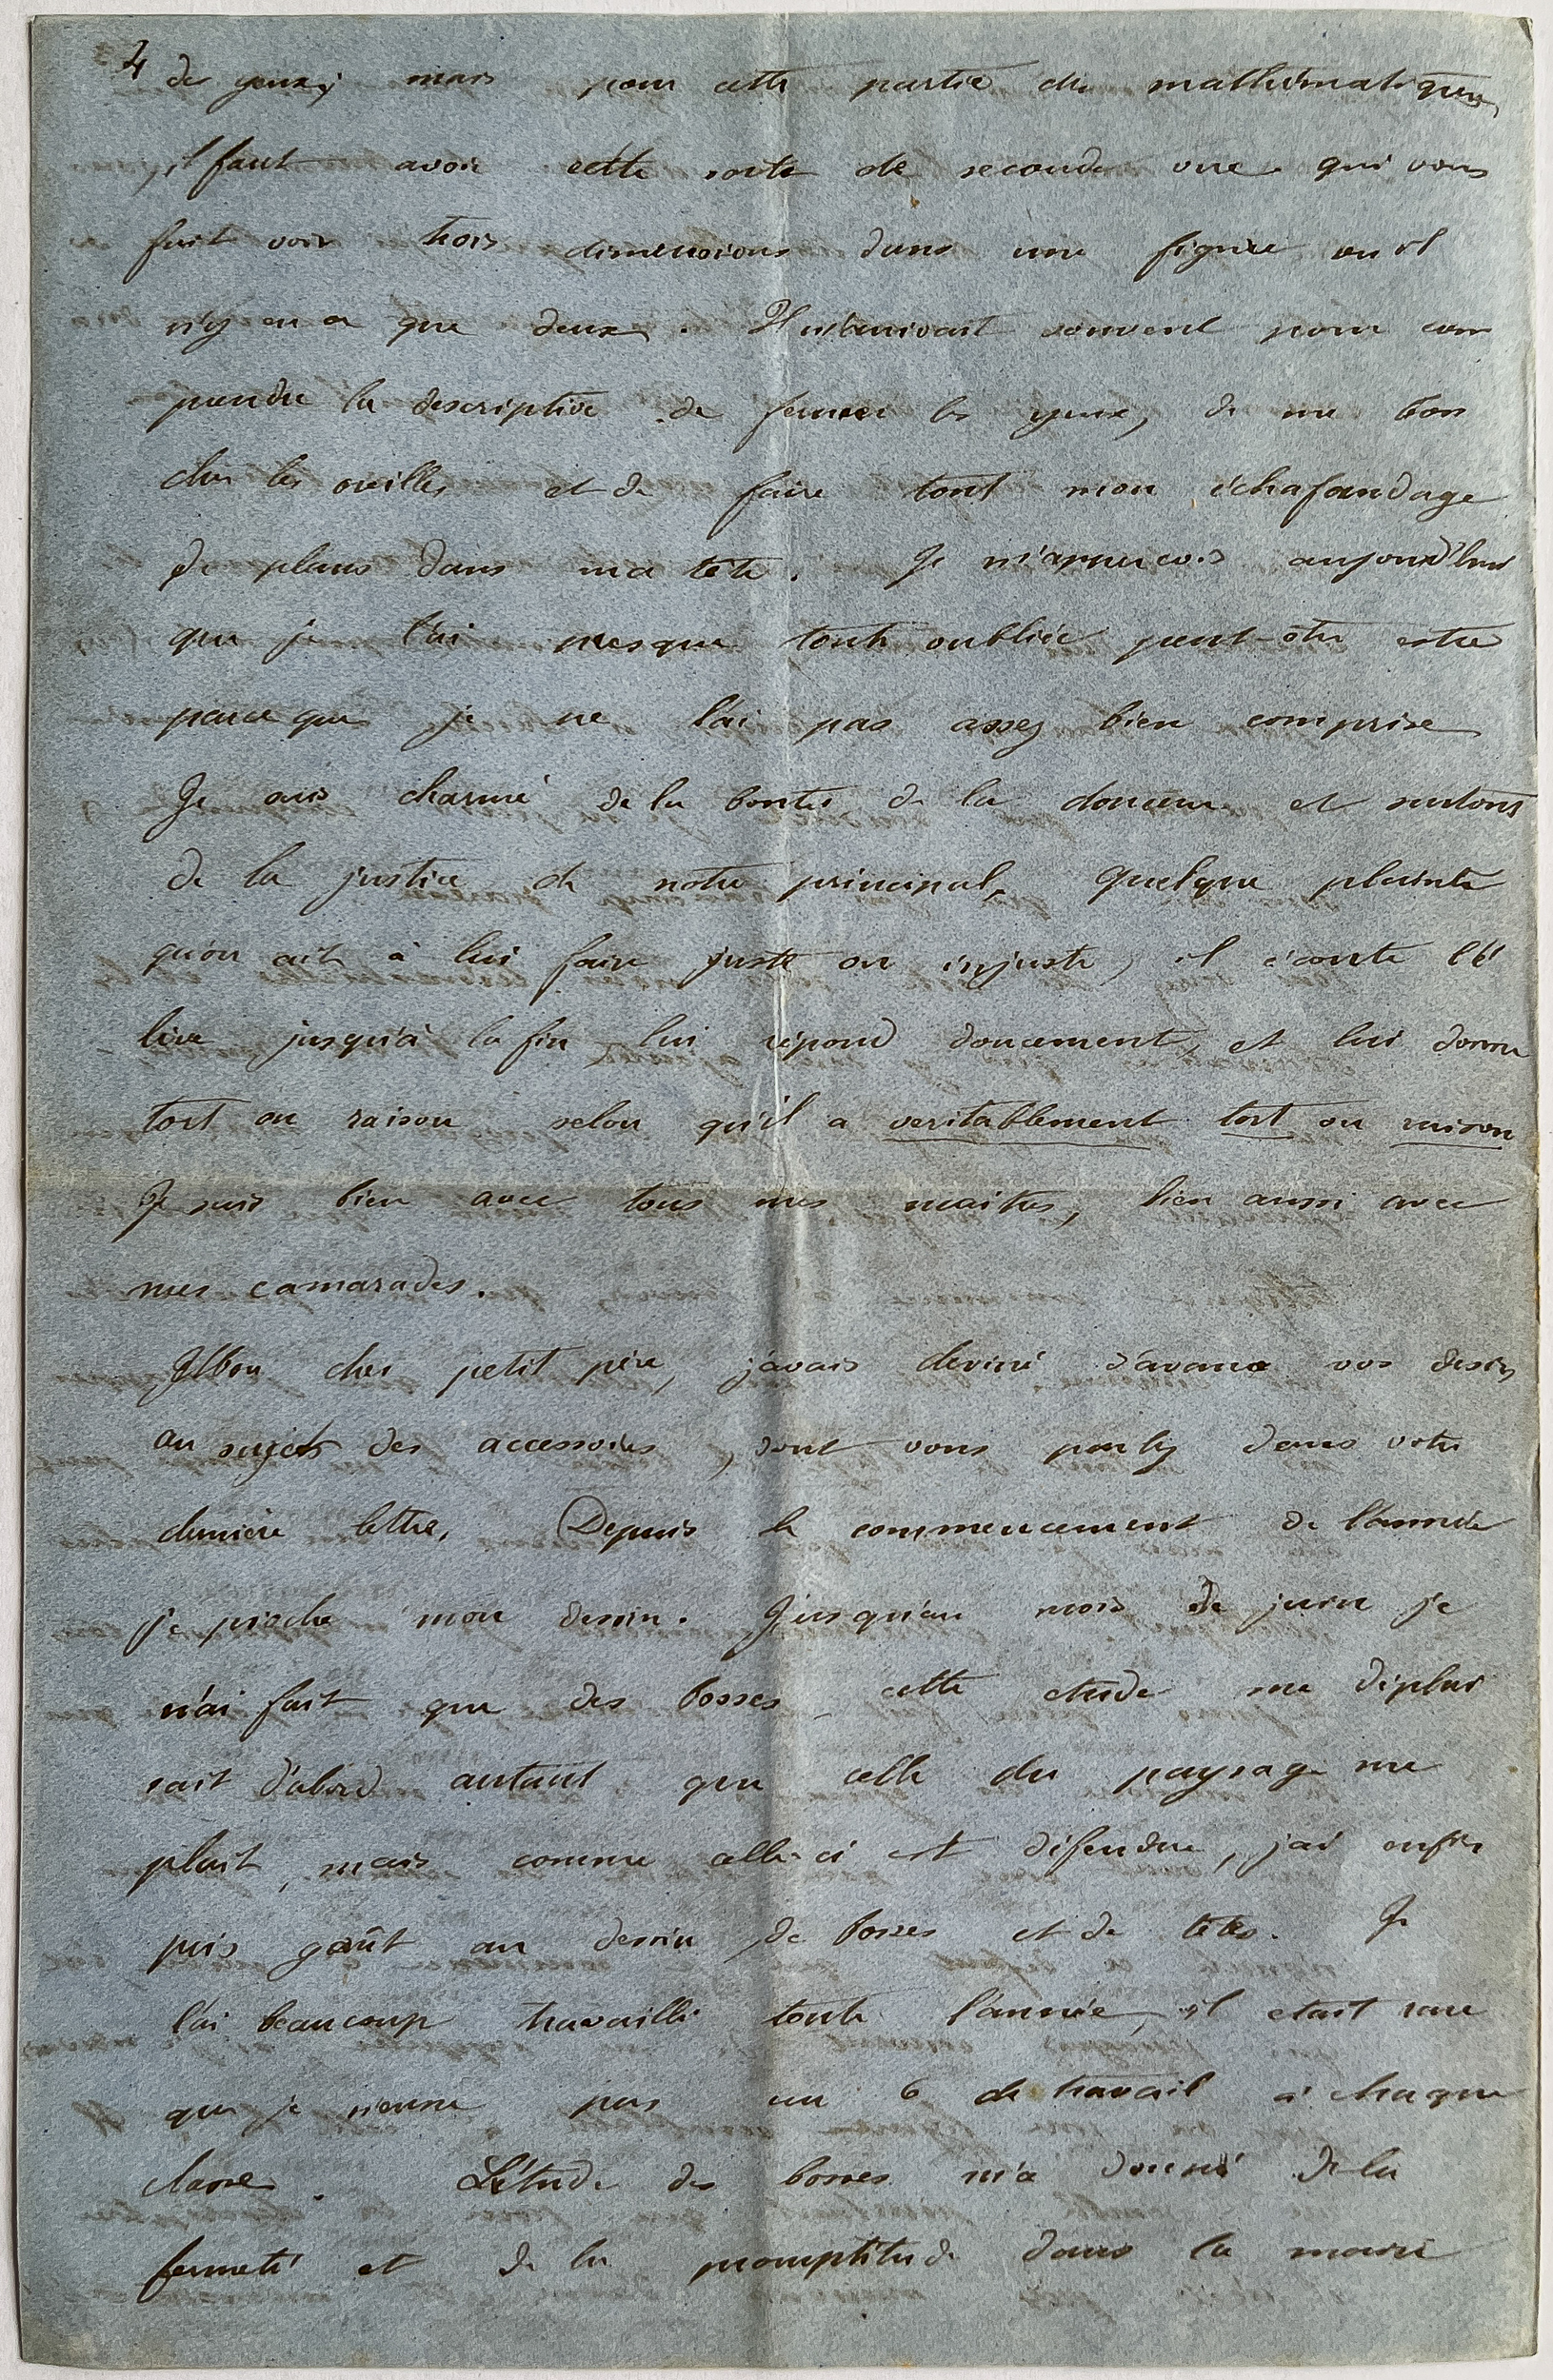 4 de yeux; mais pour cette partie des mathématiques,
il faut avoir cette sorte de seconde vue qui vous
fait voir trois dimensions dans une figure ou il
n'y en a que deux. Il m'arrivait souvent pour com
prendre la descriptive de fermer les yeux, de me bou
cher les oreilles et de faire tout mon échafaudage
de plans dans ma tete. Je m'aperçois aujourd'hui
que je l'ai presque toute oubliée peut-etre estce
parceque je ne l'ai pas assez bien comprise
Je suis charmé de la bonté de la douceur et surtout
de la justice de notre principal, quelque plainte
qu'on ait à lui faire juste ou injuste, il écoute l'é
lève jusqu'à la fin lui répond doucement, et lui donne
tort ou raison selon qu'il a veritablement tort ou raison
Je suis bien avec tous mes maitres, bien aussi avec
mes camarades.
Mon cher petit père, j'avais deviné d'avance vos desirs
au sujets des accessoires, dont vous parlez dans votre
derniere lettre. Depuis le commencement de l'année
je pioche mon dessin. Jusqu'au mois de juin je
n'ai fait que des bosses cette etude me déplai
sait d'abord autant que celle du paysage me
plait, mais comme celle-ci est défendue, j'ai enfin
pris goût au dessin de bosses et de tetes. Je
l'ai beaucoup travaillé toute l'année, il etait rare
que je n'eusse pas un 6 de travail à chaque
classe. L'étude des bosses m'a donné de la
fermeté et de la promptitude dans la main